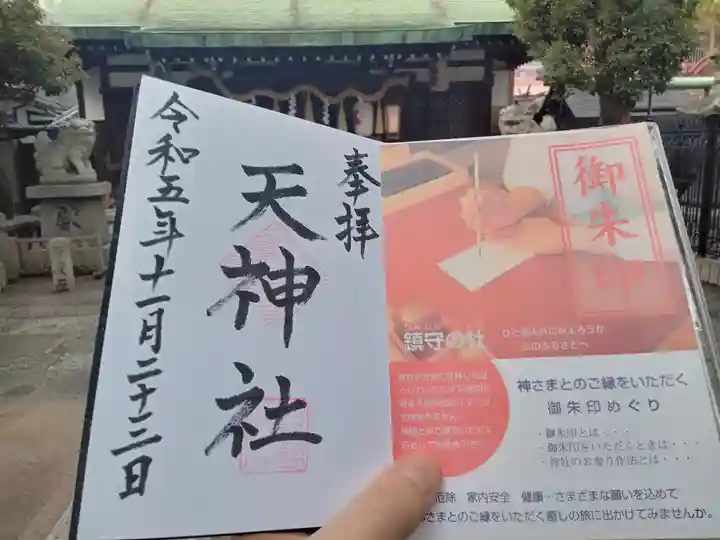 奉拝
天神社
令和五年十一月二十三日
御朱印
鎮守の杜
ひと皆んなにかえろうか
心のふるさとへ
神さまとのご縁をいただく
御朱印めぐり
・御朱印とは・・・
・御朱印をいただくときは・・・
・神社のお参り作法とは・・・
厄除 家内安全 健康…さまざまな願いを込めて
さまとのご縁をいただく癒しの旅に出かけてみませんか。